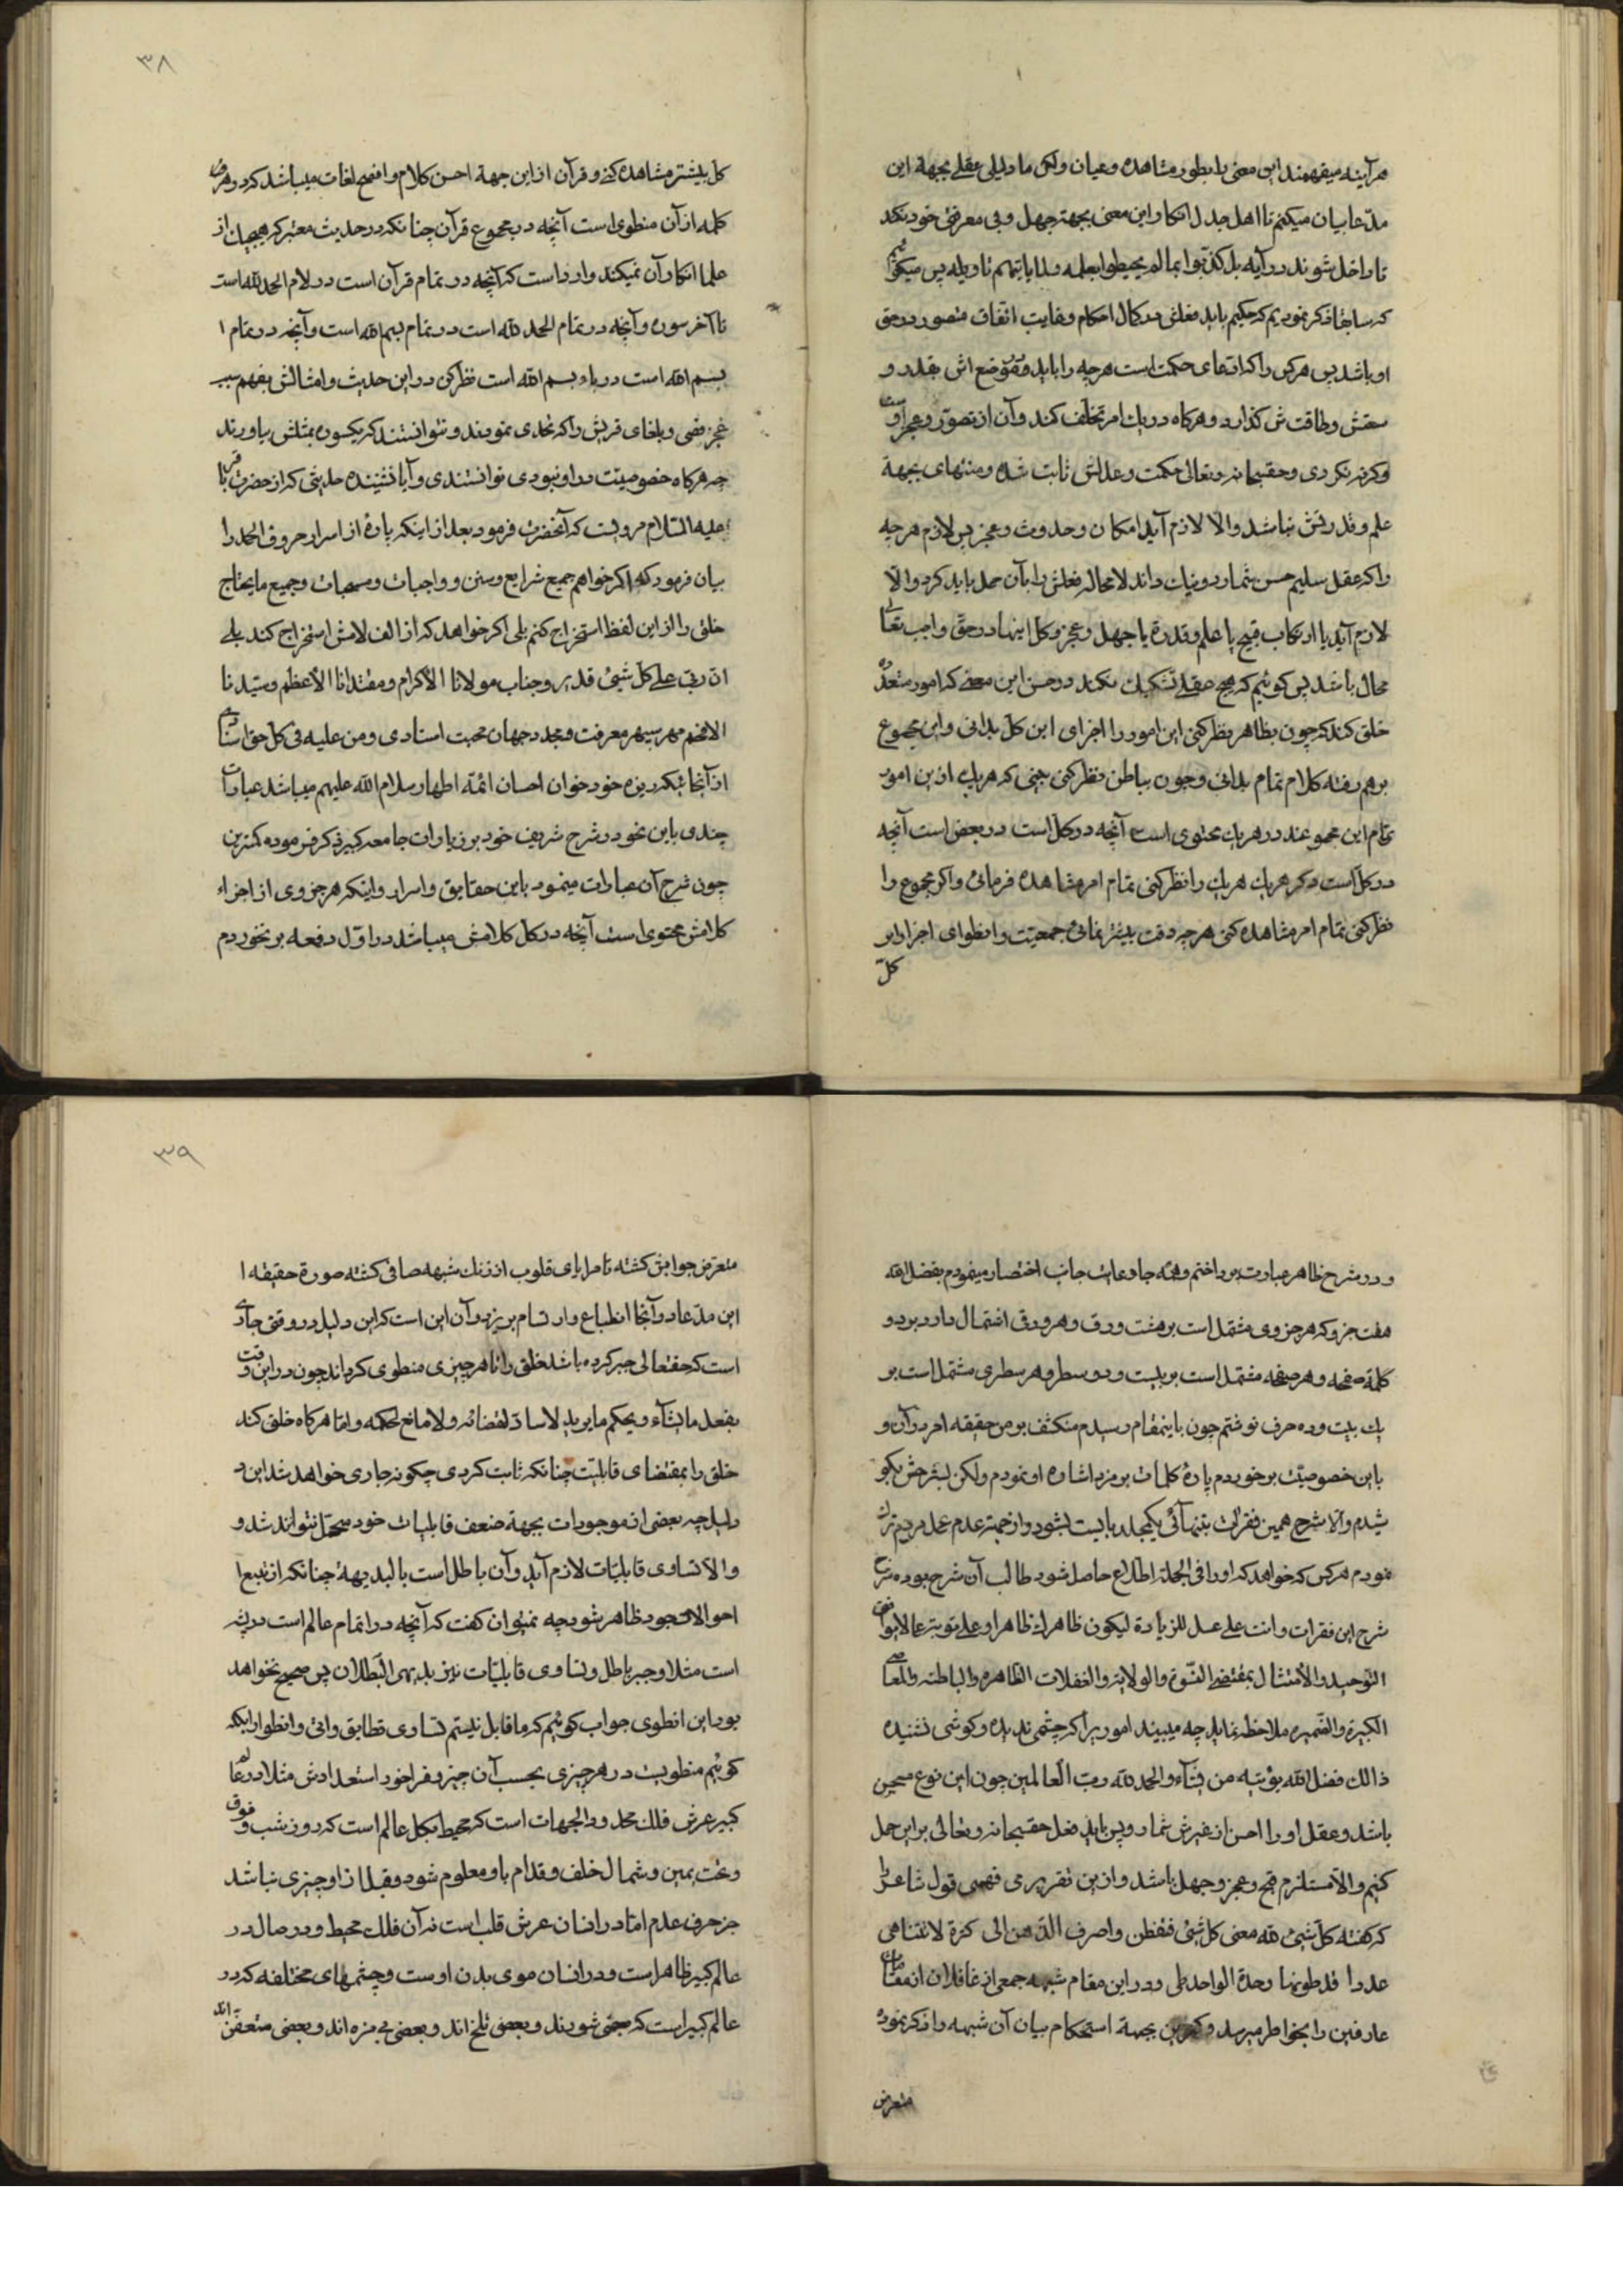 هرآینه میفهمند این معنی را بطور مشاهده و عیان ولکن ما دلیلی عقلی بجهة این
مدّعا بیان میکنیم تا اهل جدل انکار این معنی بجهة جهل و بی معرفتی خود نکند
تا داخل شوند در آیه بل کذبوا بما لم یحیطوا بعلمه و لما یاتهم تاویله پس میکوئیم
که سابقا ذکر نمودیم که حکیم باید فعلش در کمال احکام و غایت اتقان متصور در حق
او باشد پس هرکس را که ادعای حکمت است هرچه را باید در موضع اش بقدر و
سعتش و طاقت ش کذارد و هرکاه در یك امر تخلّف کند و آن از تصوّر و عجز اوست
وکرنه نکردی و حقسبحانه و تعالی حکمت و عدلش ثابت شده و منتهای بجهة
علم و قدرتش نباشد والا لازم آید امکان و حدوث و عجز پس لازم هرچه
را که عقل سلیم حسن شمارد و نیك داند لامحاله فعلش را بآن حمل باید کرد والّا
لازم آید یا ارتکاب قبیح با علم و قدرة یا جهل و عجز و کل اینها در حق واجب تعالی
محال باشد پس کوئیم که هیچ عقلی تشکیك نکند در حسن این معنی که امور متعدّده
خلق کند که چون بظاهر نظر کنی این امور را اجزای این کل بدانی و این مجموع
برهم رفته کلام تمام بدانی و چون بباطن نظر کنی بینی که هریك ازین امور
تمام این مجموعند در هریك محتوی است آنچه در کل است در بعض است آنچه
در کل است دکر هریك هریك را نظر کنی تمام امر مشاهده فرمائی و اکر مجموع را
نظر کنی تمام امر مشاهده کنی هرچه دقت بیشتر نمائی جمعیّت و انطوای اجزا و ابر
کلّ
۳۸
کل بیشتر مشاهده کنی و قرآن از این جهة احسن کلام و افصح لغات میباشد کرد و هر
کلمه از آن منطوی است آنچه در مجموع قرآن چنانکه در حدیث معتبر که هیچیك از
علما انکار آن نمیکند وارد است که آنچه در تمام قرآن است در لام الحمد لله است
تا آخر سوره و آنچه در تمام الحمد لله است در تمام بسم الله است و آنچه در تمام ا
بسم الله است در باء بسم الله است نظر کن در این حدیث و امثالش بفهم سبب
عجز فصحی و بلغای قریش را که تحدی نمودند و نتوانستند که یکسوره بمثلش بیاورند
چه هرکاه خصوصیّت در او نبودی توانستندی و آیا نشنیده حدیثی که از حضرت باقر
علیه السّلام مرویست که آنحضرت فرمود بعد از اینکه پارۀ از اسرار حروف الحمد را
بیان فرمود که اکر خواهم جمیع شرایع و سنن و واجبات و مستحبات و جمیع مایحتاج
خلق را از این لفظ استخراج کنم بلی اکر خواهد که از الف لامش استخراج کند بلی
انّ ربی علی کلّ شیئ قدیر و جناب مولانا الاکرام و مقتدانا الأعظم و سیّدنا
الافخم مهر سپهر معرفت و مجدد جهان محبت استادی و من علیه فی کل حق استنادی
از آنجا که ریزه خور خوان احسان ائمّۀ اطهار سلام الله علیهم میباشد عبارات
چندی باین نحو در شرح شریف خود بر زیارات جامعه کبیره ذکر فرموده کمترین
چون شرح آن عبارات مینمود باین حقایق و اسرار و اینکه هر جزوی از اجزاء
کلامش محتوی است آنچه در کل کلامش میباشد در اوّل دفعه بر نخوردم
و در شرح ظاهر عبارت پرداختم و همه جا رعایت جانب اختصار مینمودم بفضل الله
هفت جزو که هر جزوی مشتمل است بر هشت ورق و هر ورق اشتمال دارد بر دو
کلمة صفحه و هر صفحه مشتمل است بر بیست و دو سطر و هر سطری مشتمل است بر
یك بیت و ده حرف نوشتم چون باینمقام رسیدم منکشف بر من حقیقه امر در آن و
باین خصوصیّت برخوردم پارۀ کلمات بر مزد اشاره او نمودم ولکن بشرحش نکو
شیدم والا شرح همین فقرات بتنهائی یکجلد بایست بشود و از جهة عدم عمل مردم ترك
نمودم هرکس که خواهد که او را فی الجمله اطلاع حاصل شود طالب آن شرح بوده
شرح این فقرات و انت علی عمل للزیادة لیکون ظاهرك ظاهرا و علی توبتر عالا بوا
التوحید و الأمتثال بمقتضی النّبوّة و الولایة و الغفلات الظاهره و الباطنه و المعاصی
الکبیرة و الصّغیره ملاحظه نماید چه میبیند امور یرا که چشمی ندیده و کوشی نشنیده
ذالك فضل الله یؤتیه من یشآء و الحمد لله رب العالمین چون این نوع مستحسن
باشد و عقل او را احسن از غیرش شمارد پس باید فعل حقسبحانه و تعالی بر این حمل
کنیم والا مستلزم قبح و عجز و جهل باشد و ازین تقریر می فهمی قول شاعر را
که کفته کلّ شیئ فیه معنی کل شیئ فتفطن و اصرف الذّهن الی کثرة لاتتناهی
عددا قد طوتها وحدة الواحد طی و در این مقام شبهه جمعی از غافلان از مقامات
عارفین را بخواطر میرسد و کمترین بجهة استحکام بیان آن شبهه را ذکر نموده
متعرض
۳۹
متعرض جوابش کشته تا مرایای قلوب از زنك شبهه صافی کشته صورة حقیقه ا
این مدّعا در آنجا انطباع و ارتسام پریزد و آن این است که این دلیل در وقتی جاری
است که حقتعالی جبر کرده باشد خلق را تا هر چیزی منطوی کرداند چون در این وقت
یفعل مایشآء و یحکم مایرید لا راد لقضائه و لا مانع لحکمه و امّا هرکاه خلق کند
خلق را بمقتضای قابلیّت چنانکه ثابت کردی چکونه جاری خواهد شد این د
دلیل چه بعضی از موجودات بجهة ضعف قابلیات خود متحمّل نتواند شد و
والا تساوی قابلیّات لازم آید و آن باطل است بالبدیهة چنانکه از تتبع ا
احوالات وجود ظاهر شود چه نمیتوان کفت که آنچه در تمام عالم است در پشه
است مثلا و جبر باطل و تساوی قابلیّات نیز بدیهی البطلان پس صحیح نخواهد
بود این انطوی جواب کوئیم که ما قابل نیستم تساوی تطابق واتی و انطوا را بلکه
کوئیم منطویست در هر چیزی بحسب آن چیز و فراخور استعدادش مثلا در عالم
کبیر عرش فلك محدود الجهات است که محیط بکل عالم است که روز و شب و فوق
و تحت یمین و شمال خلف و قدام باو معلوم شود و قبل از او چیزی نباشد
جز حرف عدم امّا در انسان عرش قلب است نه آن فلك محیط و در صال در
عالم کبیر ظاهر است و در انسان موی بدن اوست و چشمهای مختلفه که در
عالم کبیر است که بعضی شورند و بعضی تلخ اند و بعضی بی مزه اند و بعضی متعفّن اند